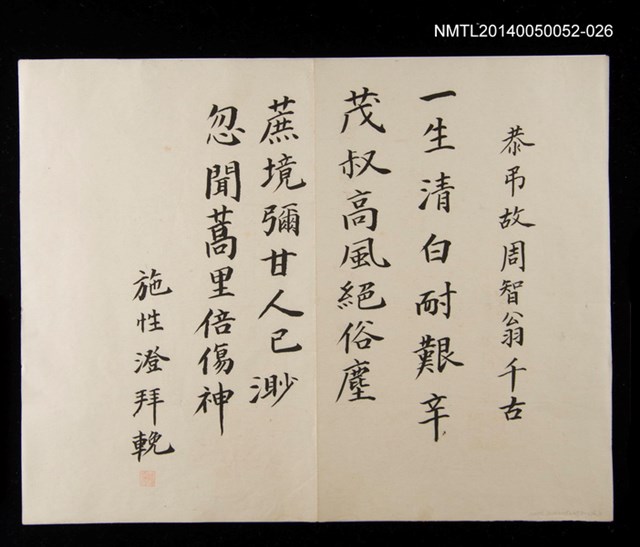 NMTL20140050052-026
恭弔故周智翁千古
一生清白耐艱辛
茂叔高風絕俗塵
蔗境彌甘人已渺
忽聞蒿里倍傷神
施性澄拜輓